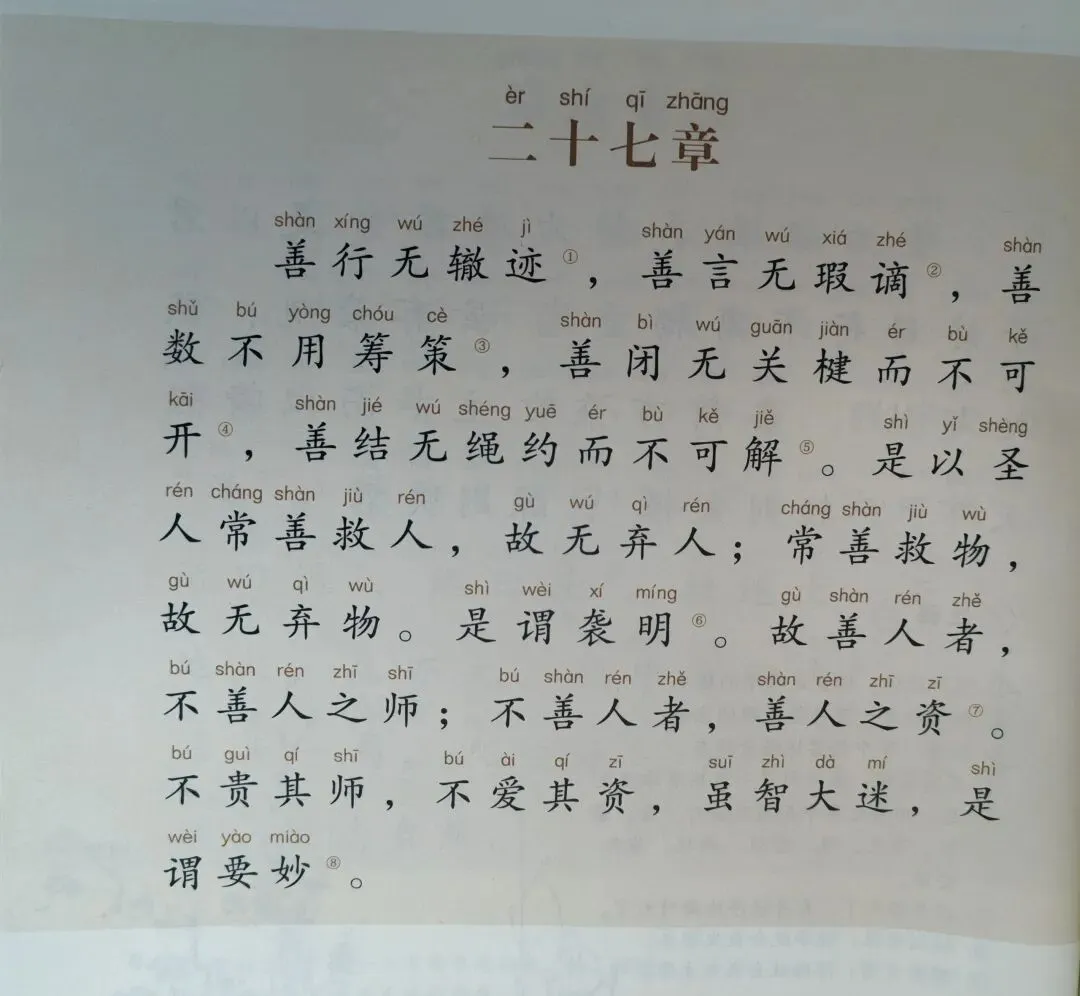 èr shí qī zhāng
二十七章
shàn xíng wú zhé jì shàn yán wú xiá zhé shàn
善行无辙迹①，善言无瑕谪②，善
shǔ bú yòng chóu cè shàn bì wú guān jiàn ér bù kě
数不用筹策③，善闭无关楗而不可
kāi shàn jié wú shéng yuē ér bù kě jiě shì yǐ shèng
开④，善结无绳约而不可解⑤。是以圣
rén cháng shàn jiù rén gù wú qì rén cháng shàn jiù wù
人常善救人，故无弃人；常善救物，
gù wú qì wù shì wèi xí míng gù shàn rén zhě
故无弃物。是谓袭明⑥。故善人者，
bú shàn rén zhī shī bú shàn rén zhě shàn rén zhī zī
不善人之师；不善人者，善人之资⑦。
bú guì qí shī bú ài qí zī suī zhì dà mí shì
不贵其师，不爱其资，虽智大迷，是
wèi yào miào
谓要妙⑧。